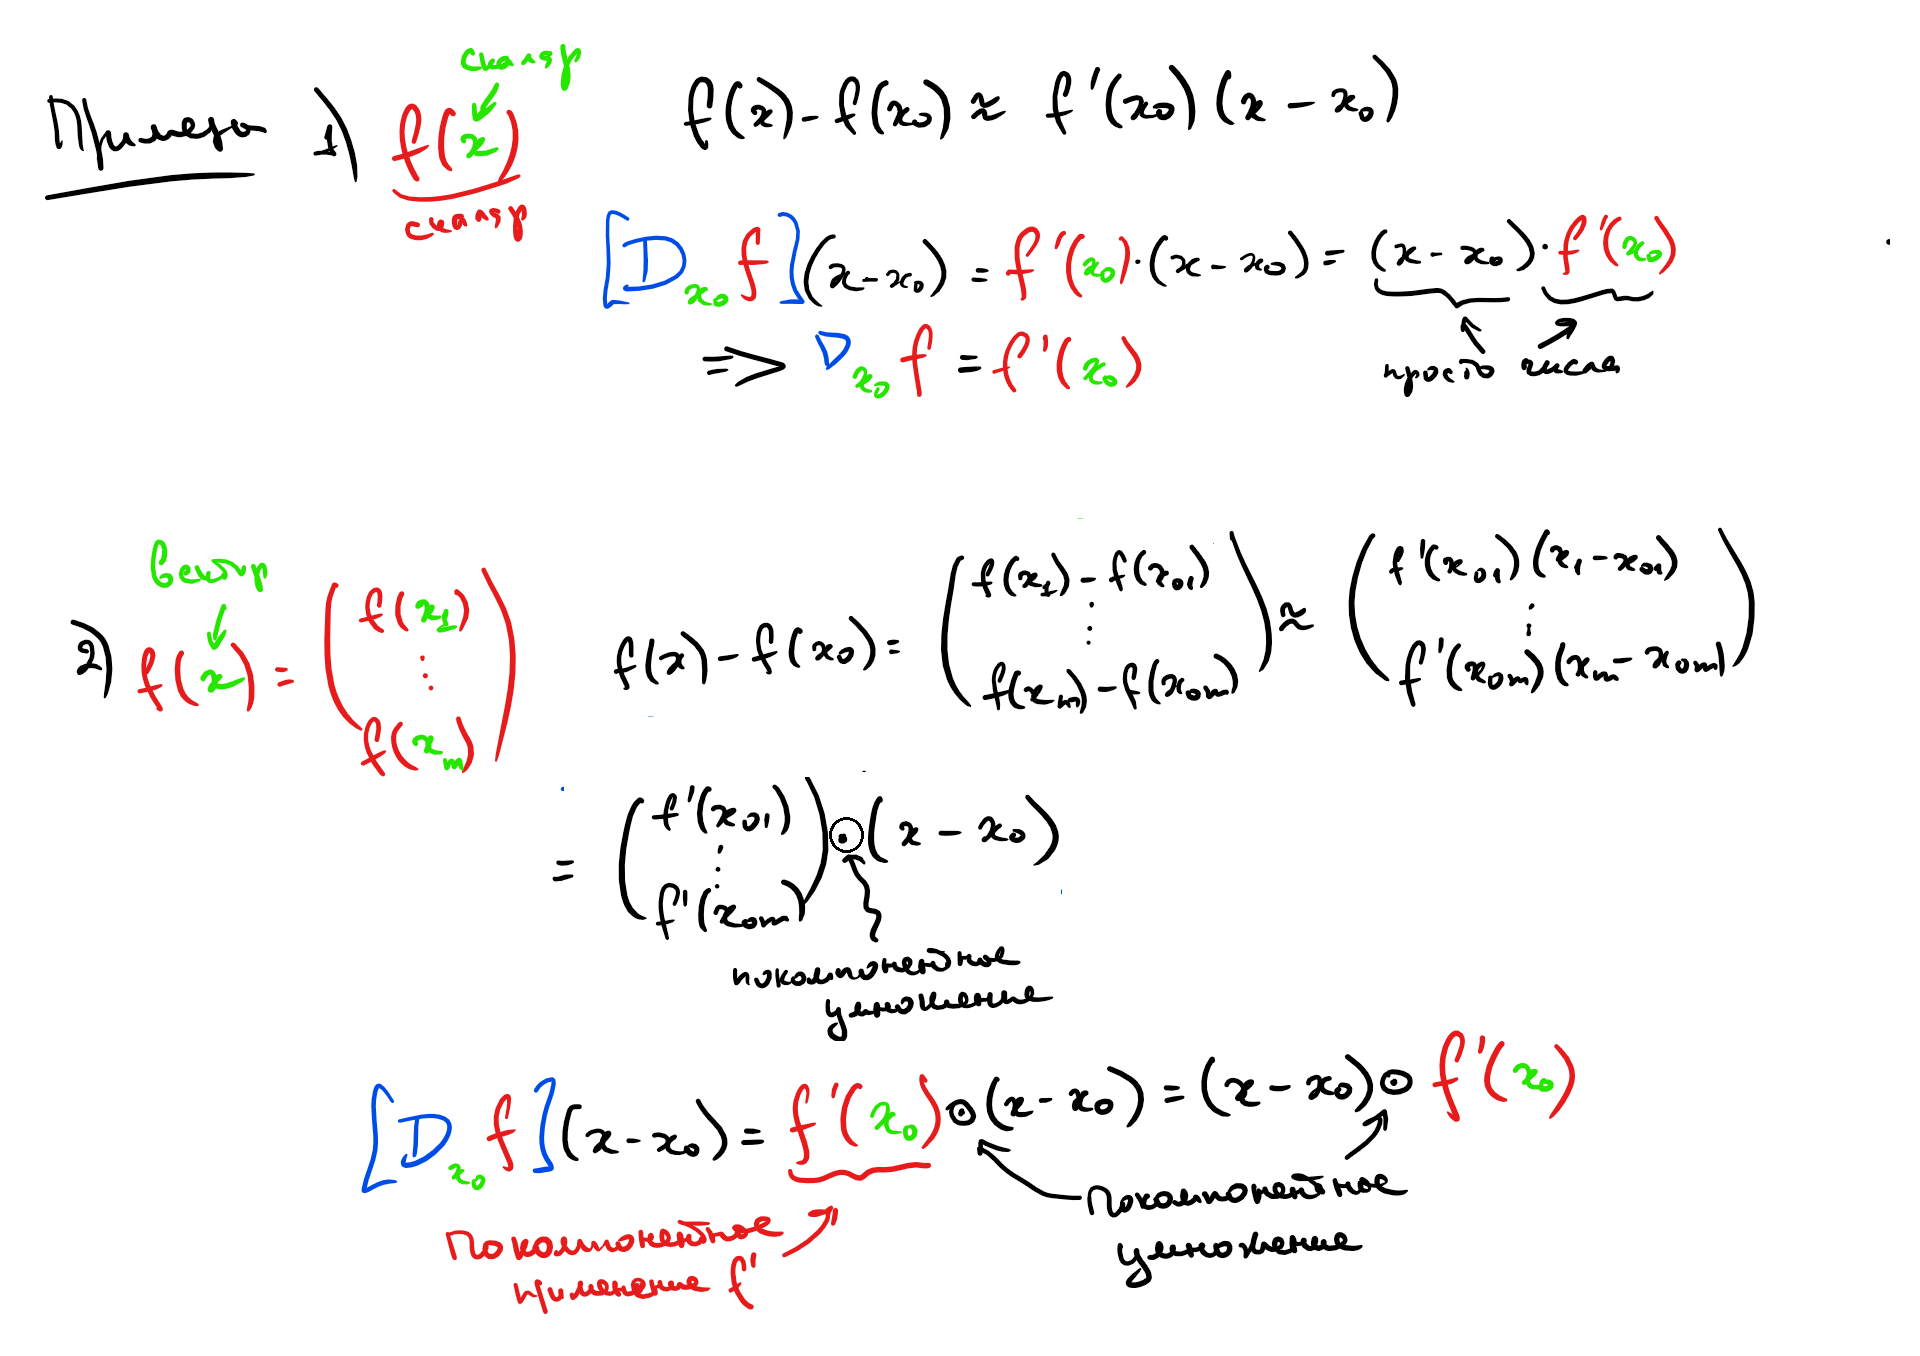 Примеры 1) f(x) скаляр
скаляр
f(x) - f(x₀) ≈ f'(x₀)(x - x₀)
[D_{x₀} f](x - x₀) = f'(x₀)·(x - x₀) = (x - x₀)·f'(x₀)
просто числа
=> D_{x₀} f = f'(x₀)
вектор
2) f(x) = ( f(x₁) ⋮ f(x_m) )
f(x) - f(x₀) = ( f(x₁) - f(x₀₁) ⋮ f(x_m) - f(x₀m) ) ≈ ( f'(x₀₁)(x₁ - x₀₁) ⋮ f'(x₀m)(x_m - x₀m) )
= ( f'(x₀₁) ⋮ f'(x₀m) ) ⊙ (x - x₀)
покомпонентное
умножение
[D_{x₀} f](x - x₀) = f'(x₀) ⊙ (x - x₀) = (x - x₀) ⊙ f'(x₀)
Покомпонентное
применение f'
Покомпонентное
умножение